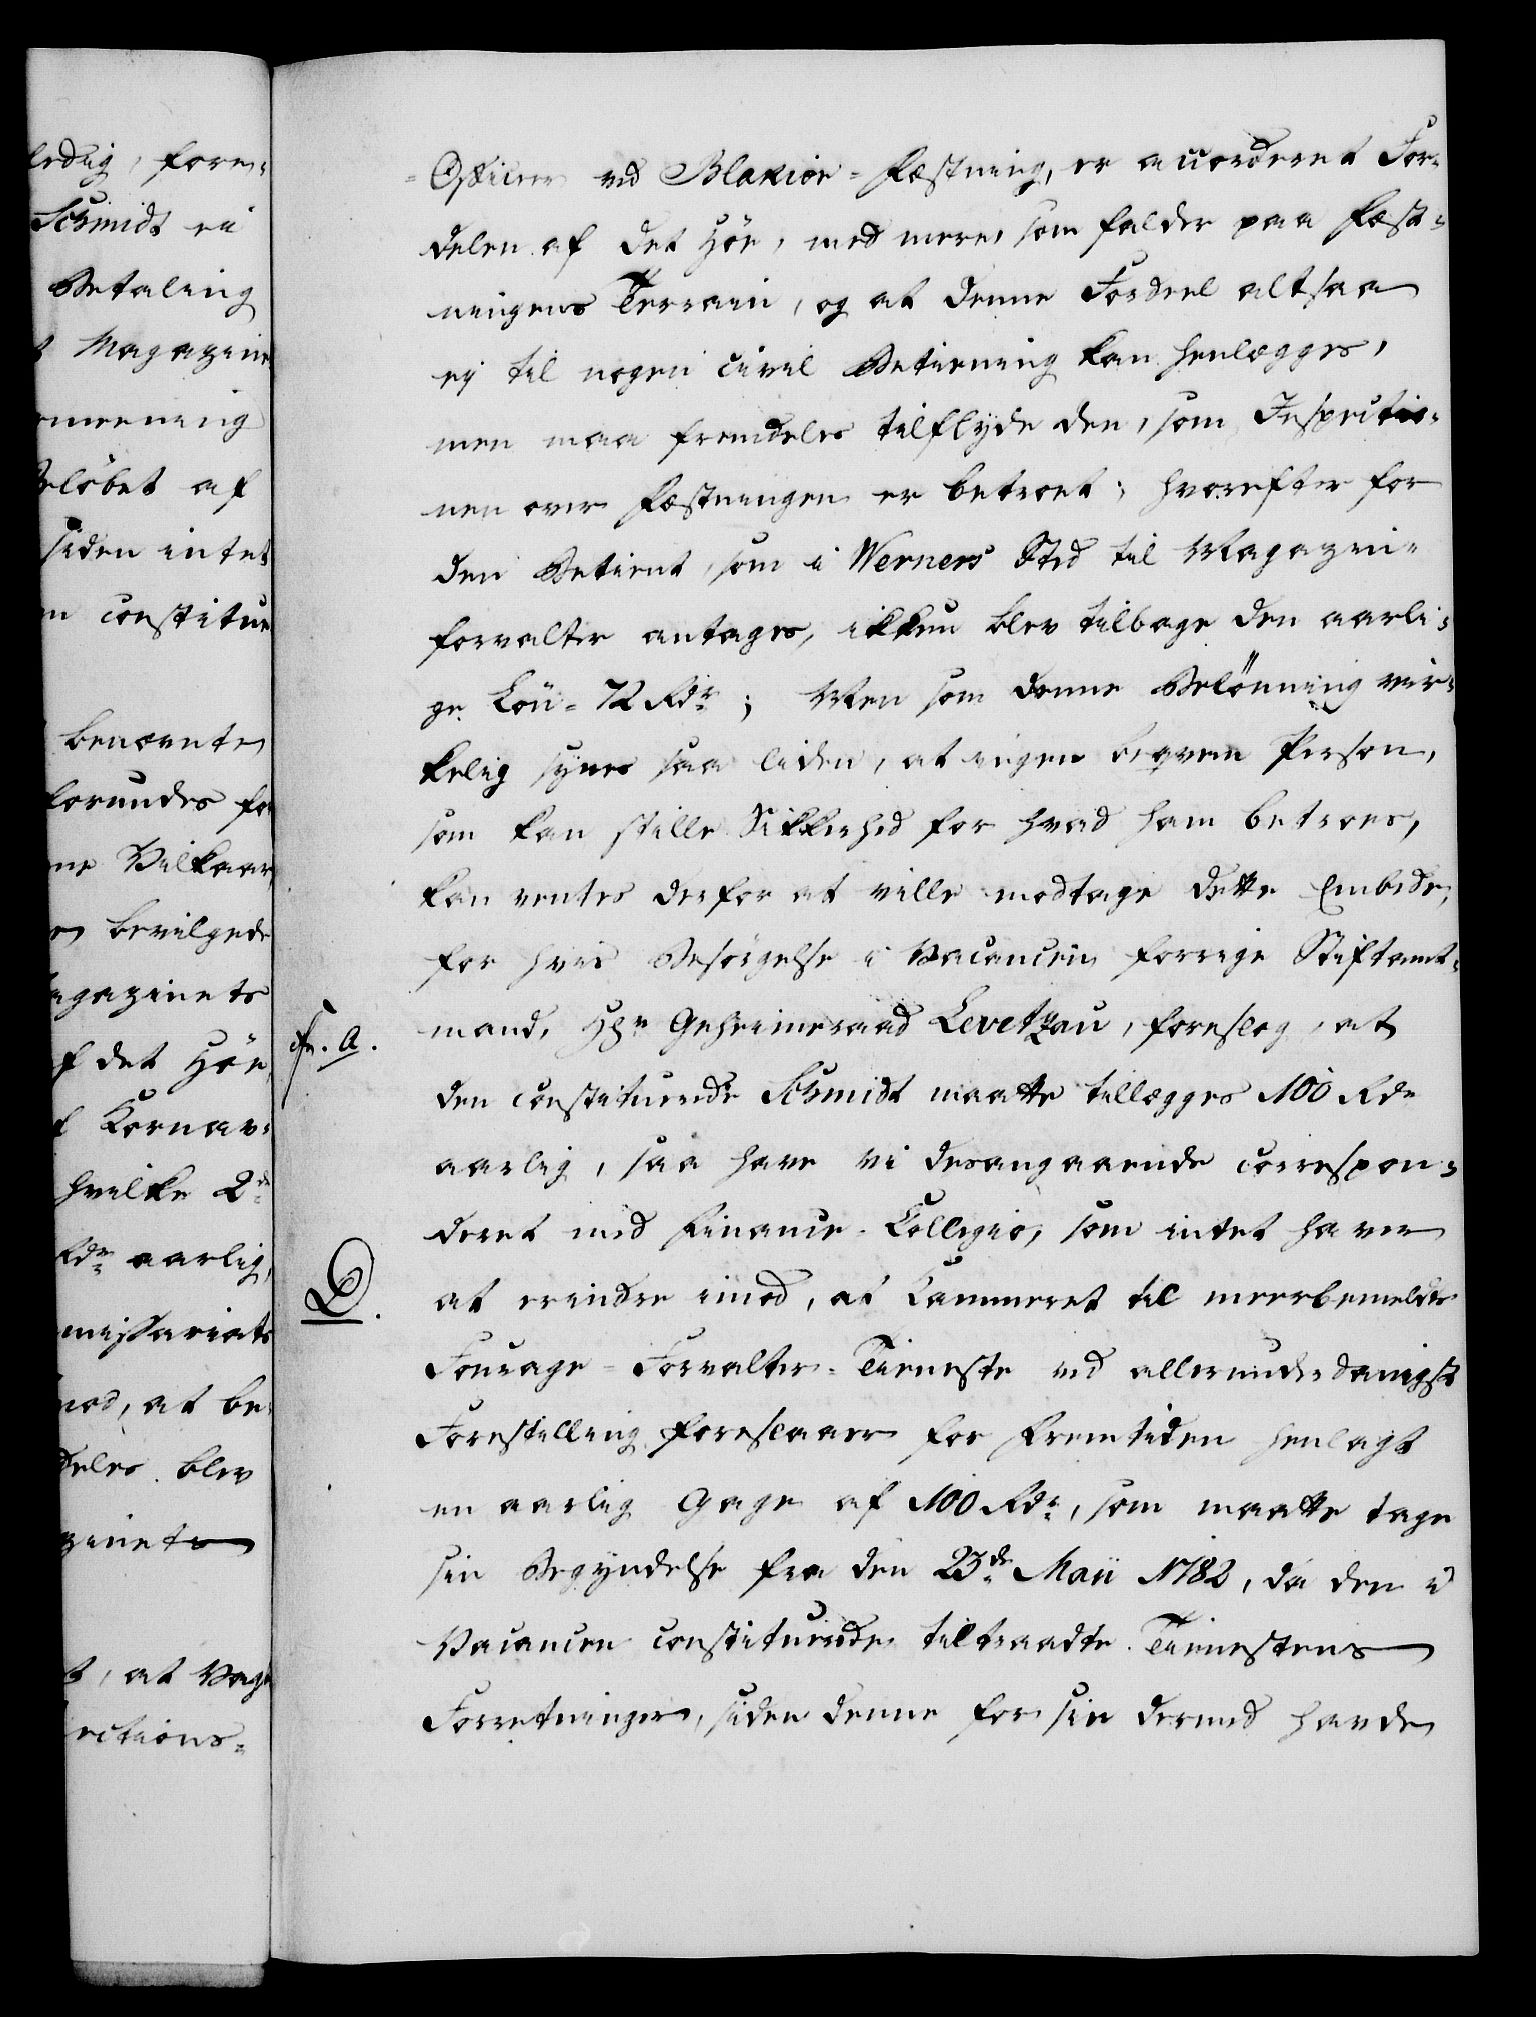 ledig, forem-
Schmidt ei
Betaling
Magazine
meening
Beløbet af
siden intet
n constitue
benævnte
forundes fo
ne Vilkaar
bevilgede
agazinets
f det Høe,
f Kornav-
hvilke 2de
Rdr aarlig,
missariats
mod, at be-
deles blev
zinets
t, at Vag
ections-
-Officier ved Blakier-Fæstning, er accorderet For-
delen af det Høe, med mere, som falder paa Fæst-
ningens Terrain, og at denne Fordeel altsaa
ej til nogen civil Betiening kan henlægges,
men maa fremdeles tilflyde den, som Inspectio-
nen over Fæstningen er betroet; hvorefter for
den Betient, som i Werners Sted til Magazin-
forvalter antages, ikkun blev tilbage den aarli-
ge Løn - 72 Rdr; Men som denne Belønning vir-
kelig synes saa liden, at ingen beqvem Person,
som kan stille Sikkerhed for hvad ham betroes,
kan ventes derfor at ville modtage dette Embede,
for hvis Besørgelse i Vacancen forrige Stiftamt-
mand, Hr Geheimeraad Levetzau, foreslog, at
fr. a.
den constituerede Schmidt maatte tillægges 100 Rdr
aarlig, saa have vi desangaaende correspon-
deret med Finance-Collegio, som intet haver
D.
at erindre imod, at Kammeret til meerbemeldte
Fourage-Forvalter-Tieneste ved allerunderdanigst
Forestilling foreslaaer for Fremtiden henlagt
en aarlig Gage af 100 Rdr, som maatte tage
sin Begyndelse fra den 23de Maii 1782, da den i
Vacancen constituerede tiltraadte Tienestens
Forretninger, siden denne for sin dermed havde